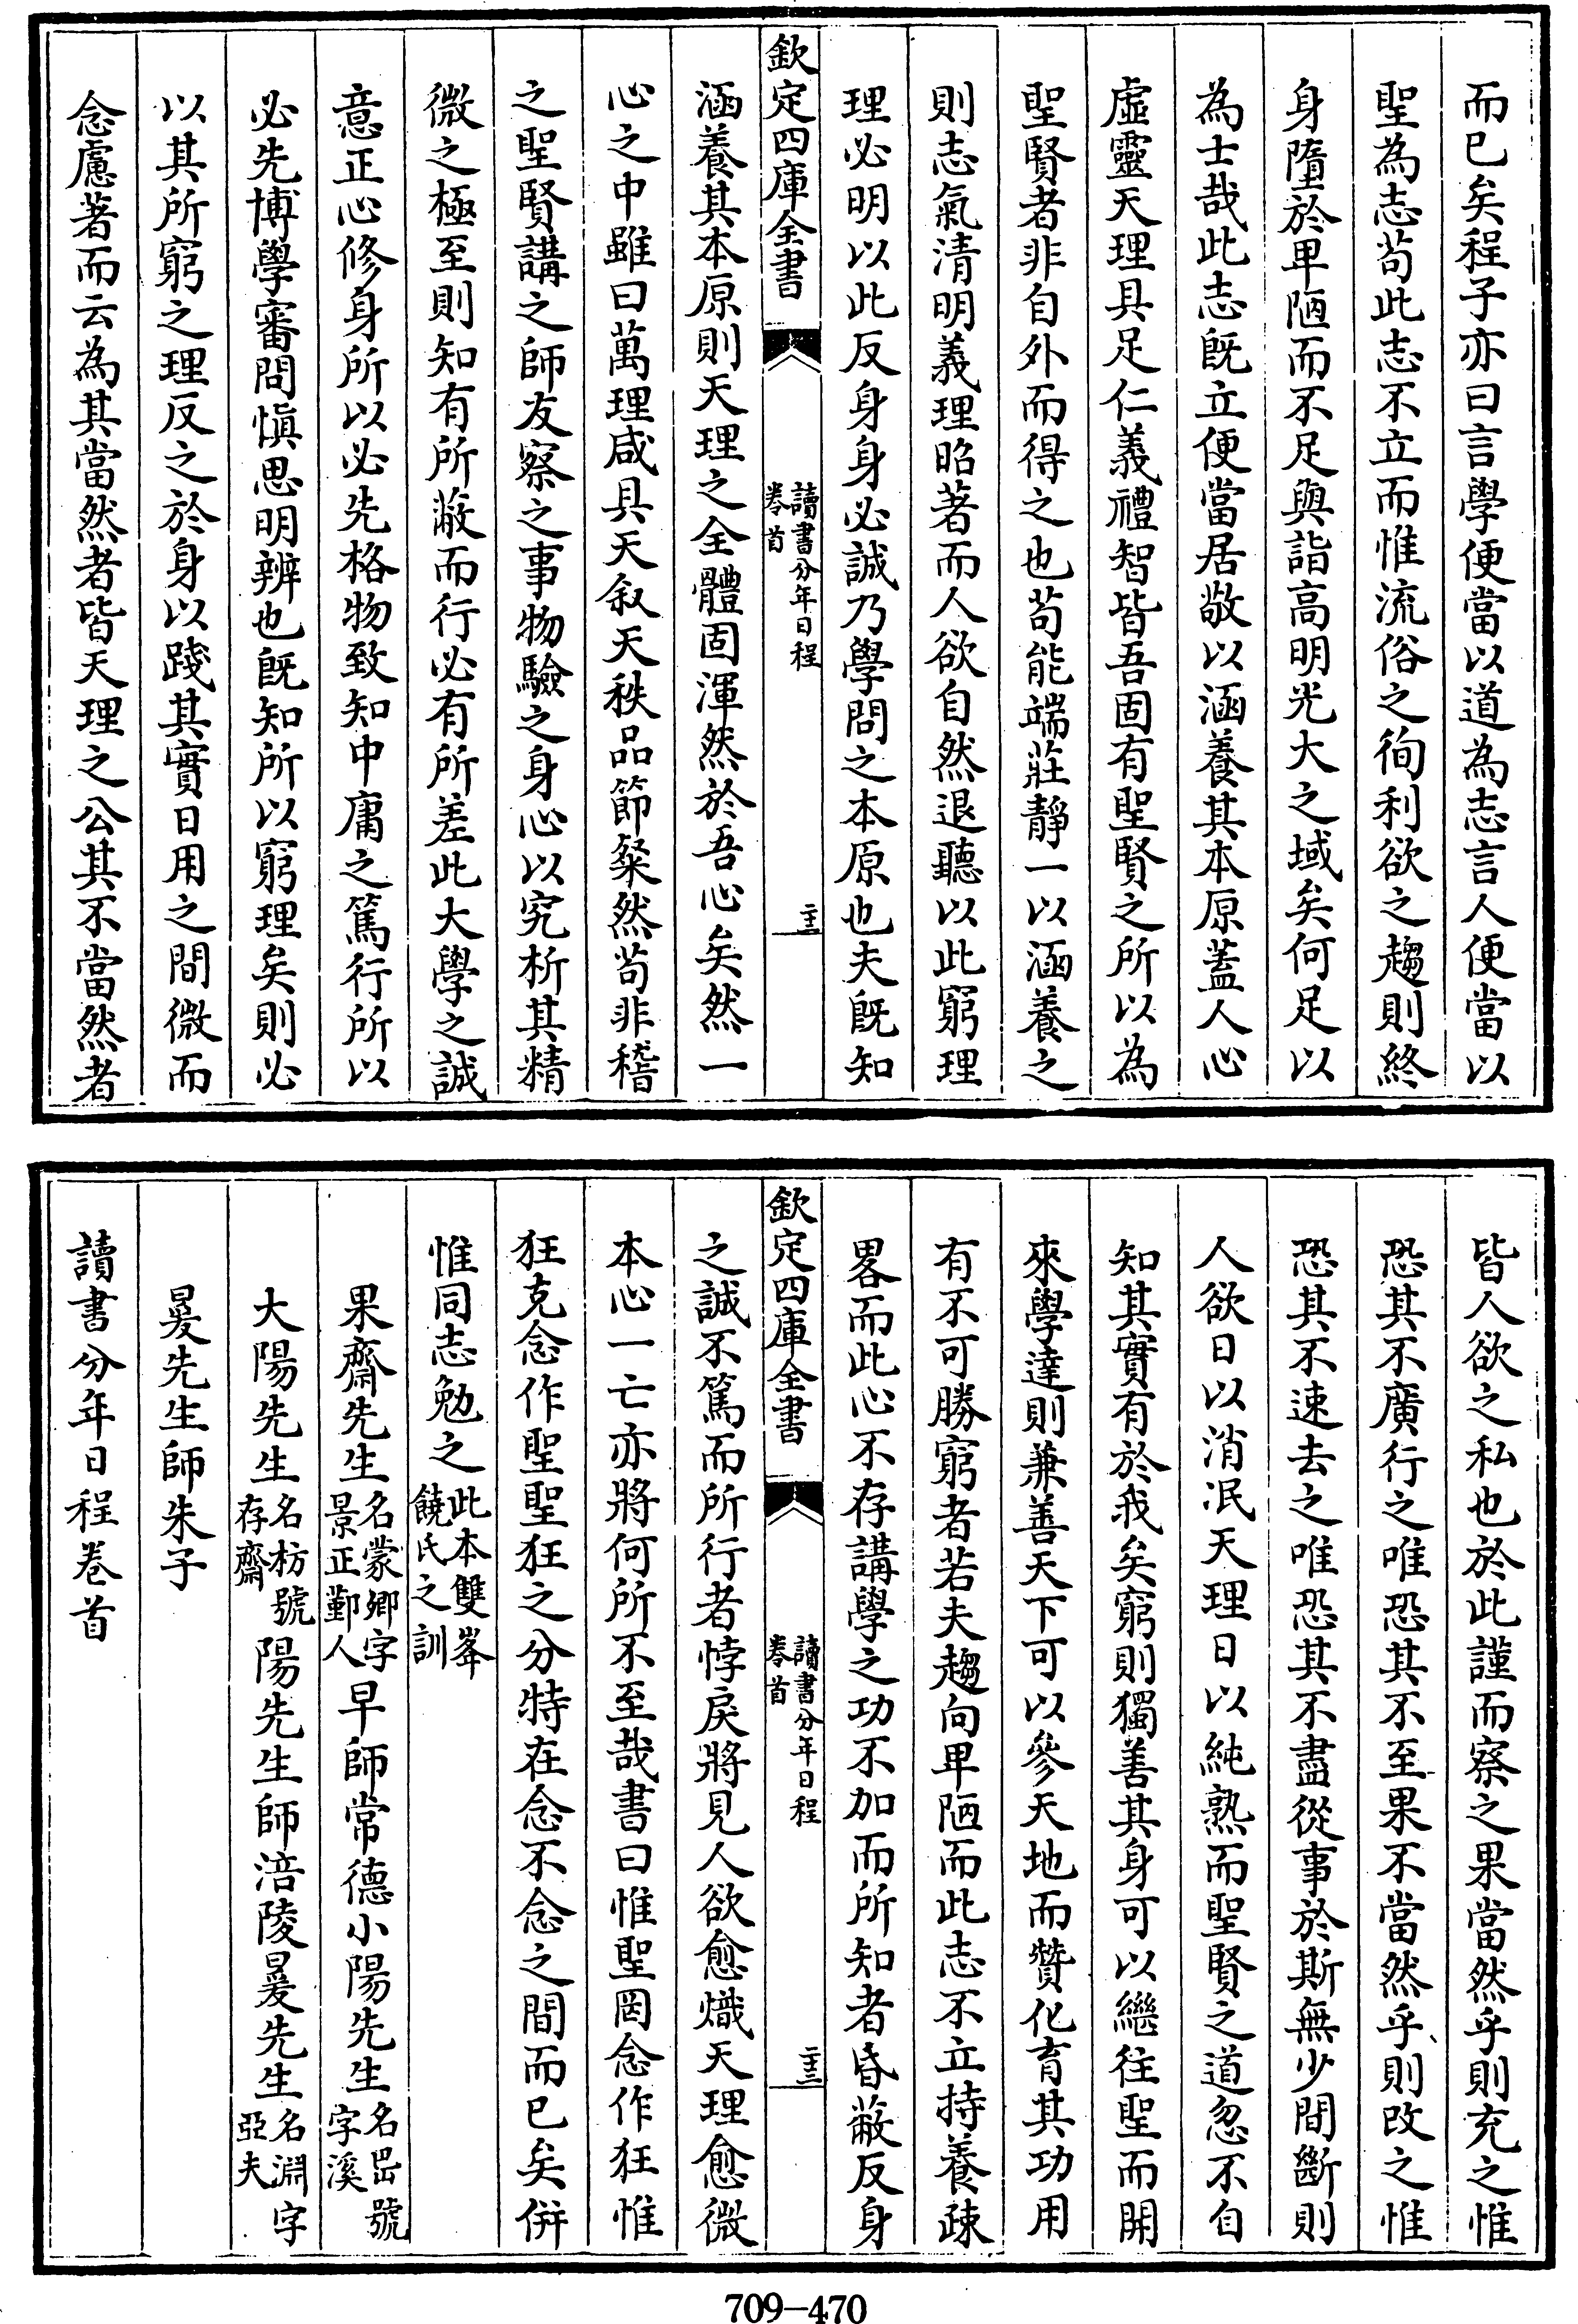 而已矣程子亦曰言學便當以道為志言人便當以
聖為志苟此志不立而惟流俗之徇利欲之趨則終
身墮於卑陋而不足與詣高明光大之域矣何足以
為士哉此志既立便當居敬以涵養其本原蓋人心
虛靈天理具足仁義禮智皆吾固有聖賢之所以為
聖賢者非自外而得之也苟能端莊靜一以涵養之
則志氣清明義理昭著而人欲自然退聽以此窮理
理必明以此反身身必誠乃學問之本原也夫既知
欽定四庫全書
讀書分年日程
卷首
涵養其本原則天理之全體固渾然於吾心矣然一
心之中雖曰萬理咸具天叙天秩品節粲然苟非稽
之聖賢講之師友察之事物驗之身心以究析其精
微之極至則知有所蔽而行必有所差此大學之誠
意正心修身所以必先格物致知中庸之篤行所以
必先博學審問慎思明辨也既知所以窮理矣則必
以其所窮之理反之於身以踐其實日用之間微而
念慮著而云為其當然者皆天理之公其不當然者
皆人欲之私也於此謹而察之果當然乎則充之惟
恐其不廣行之唯恐其不至果不當然乎則改之惟
恐其不速去之唯恐其不盡從事於斯無少間斷則
人欲日以消泯天理日以純熟而聖賢之道忽不自
知其實有於我矣窮則獨善其身可以繼往聖而開
來學達則兼善天下可以參天地而贊化育其功用
有不可勝窮者若夫趨向卑陋而此志不立持養疎
畧而此心不存講學之功不加而所知者昏蔽反身
欽定四庫全書
讀書分年日程
卷首
之誠不篤而所行者悖戾將見人欲愈熾天理愈微
本心一亡亦將何所不至哉書曰惟聖罔念作狂惟
狂克念作聖聖狂之分特在念不念之間而已矣併
惟同志勉之此本雙峯饒氏之訓
果齋先生名蒙卿字景正鄞人早師常德小陽先生名嵒號字溪
大陽先生名枋號存齋陽先生師涪陵㬊先生名淵字亞夫
㬊先生師朱子
讀書分年日程卷首
709-470